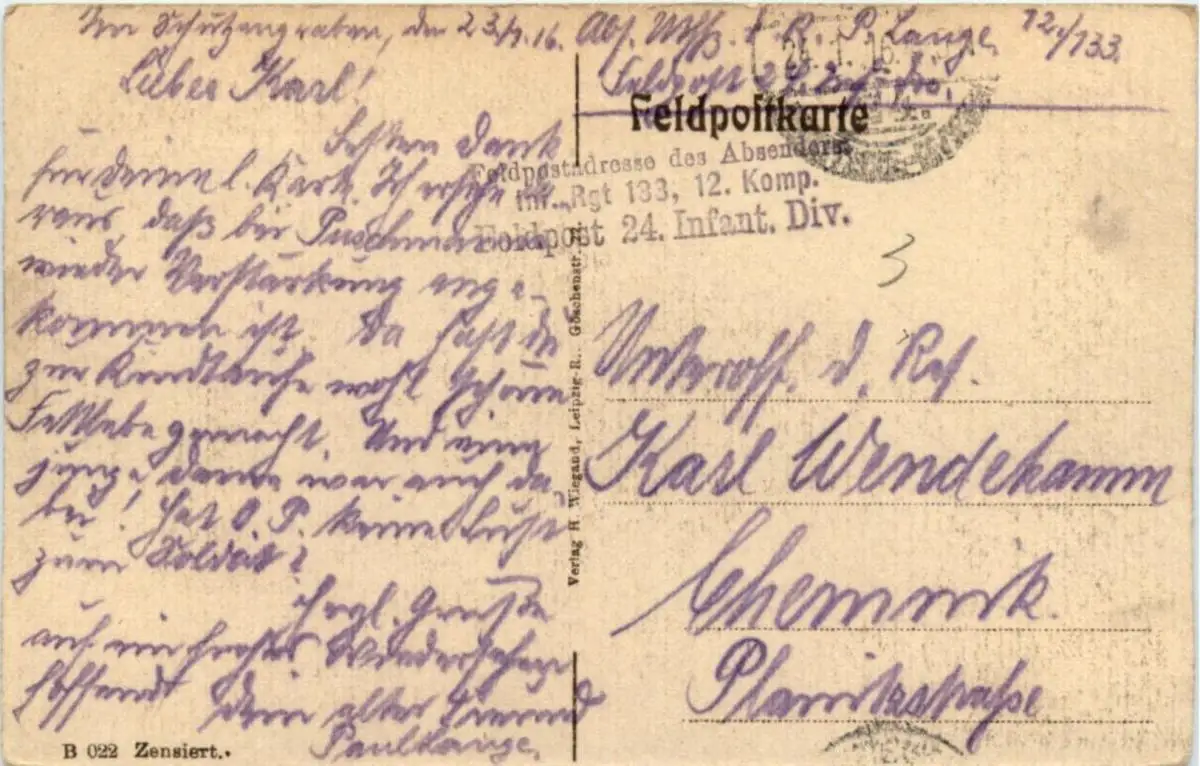 Im Schützengraben, den 23./1.16.
Lieber Karl!
Besten Dank
für Deine l. Karte. Ich ersehe da
raus, daß bei Puschmanns
wieder Verstärkung ange-
kommen ist. Da hast du
zur Kindtaufe wohl
gemacht. Und eine
junge Dame war auch da
bei! Hat O. P. keine Lust
zum Soldat?
Herzl. Grüße
auf ein frohes Wiedersehen
hoffend Dein alter Freund
Paul Lange.
B 022 Zensiert.
Verlag H. Wiegand, Leipzig-R., Göschenstr.
Abs. Utffz. d. R. P. Lange 12./133.
Feldpost 24. Inf. Div.
24. 1. 16.
Feldpostkarte
Feldpostadresse des Absenders:
Inf. Rgt 133, 12. Komp.
Feldpost 24. Infant. Div.
3
Unteroff. d. Res.
Karl Wendekamm
Chemnitz.
Planitzstraße